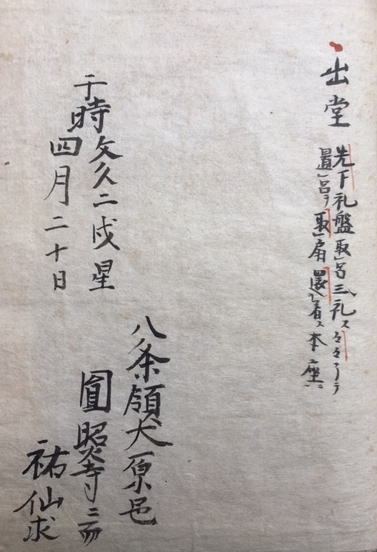 出堂
先下礼盤取呂三礼ス
置呂ヲ取扇還着ス本座ニ
于時文久二戌星
四月二十日
八条領犬原邑
圓照寺ニ而
祐仙求